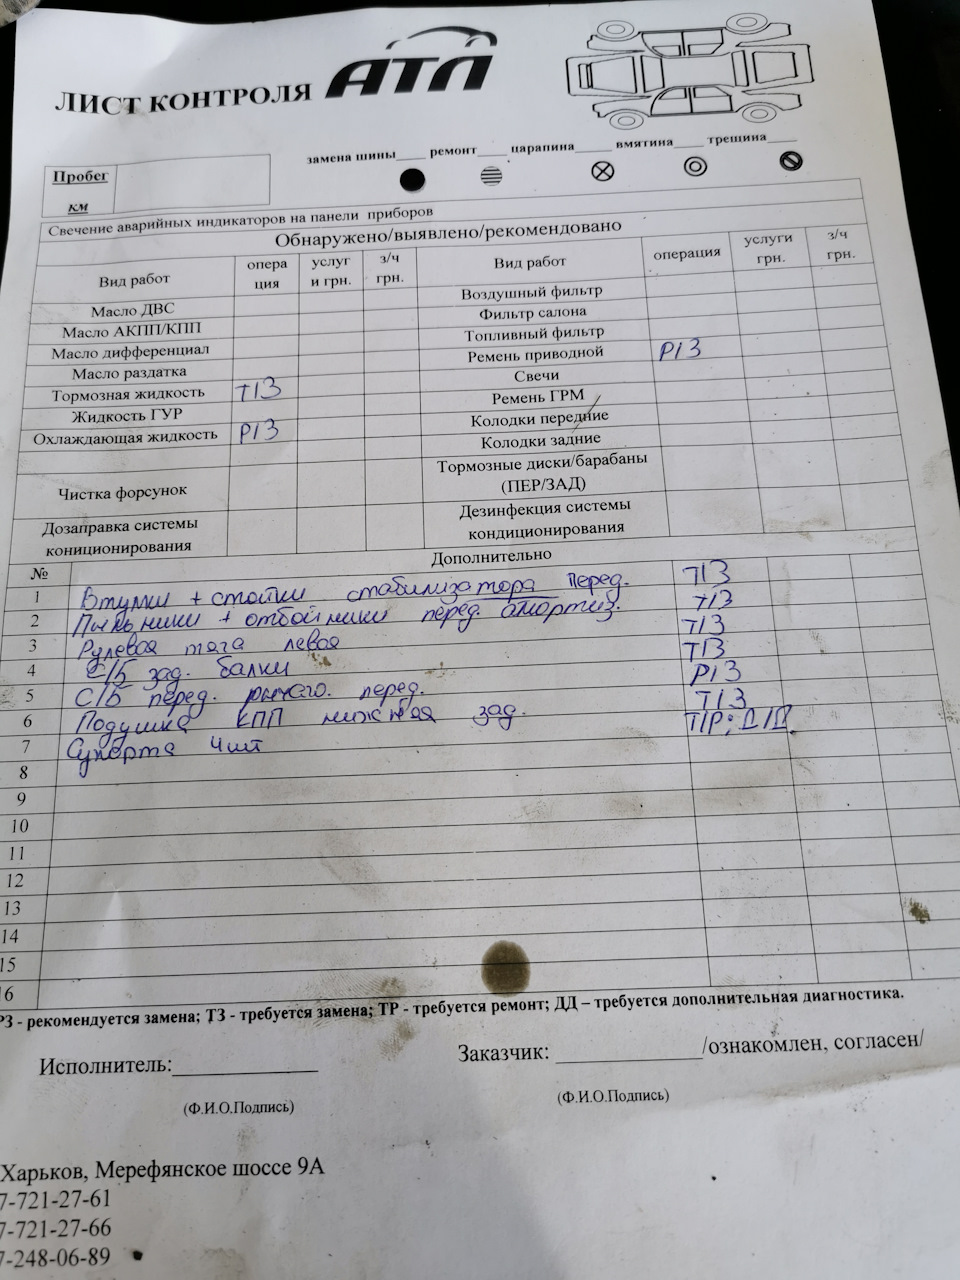 ЛИСТ КОНТРОЛЯ АТЛ
замена шины____ ремонт____ царапина____ вмятина____ трещина____
Пробег
км
Свечение аварийных индикаторов на панели приборов
Обнаружено/выявлено/рекомендовано
Вид работ опера ция услуг и грн. з/ч грн. Вид работ операция услуги грн. з/ч грн.
Масло ДВС Воздушный фильтр
Масло АКПП/КПП Фильтр салона
Масло дифференциал Топливный фильтр
Масло раздатка Ремень приводной Р/З
Тормозная жидкость Т/З Свечи
Жидкость ГУР Ремень ГРМ
Охлаждающая жидкость Р/З Колодки передние
Колодки задние
Чистка форсунок Тормозные диски/барабаны (ПЕР/ЗАД)
Дозаправка системы кониционирования Дезинфекция системы кондиционирования
№ Дополнительно
1 Втулки + стойки стабилизатора перед. Т/З
2 Пыльники + отбойники перед. амортиз. Т/З
3 Рулевая тяга левая Т/З
4 С/Б зад. балки Т/З
5 С/Б перед. рычаго. перед. Р/З
6 Подушка КПП нижняя зад. Т/З
7 Суппорта 4шт Т/Р; Д/Д.
8
9
10
11
12
13
14
15
16
РЗ - рекомендуется замена; ТЗ - требуется замена; ТР - требуется ремонт; ДД – требуется дополнительная диагностика.
Исполнитель:____________ Заказчик: ____________/ознакомлен, согласен/
(Ф.И.О.Подпись) (Ф.И.О.Подпись)
Харьков, Мерефянское шоссе 9А
7-721-27-61
7-721-27-66
7-248-06-89